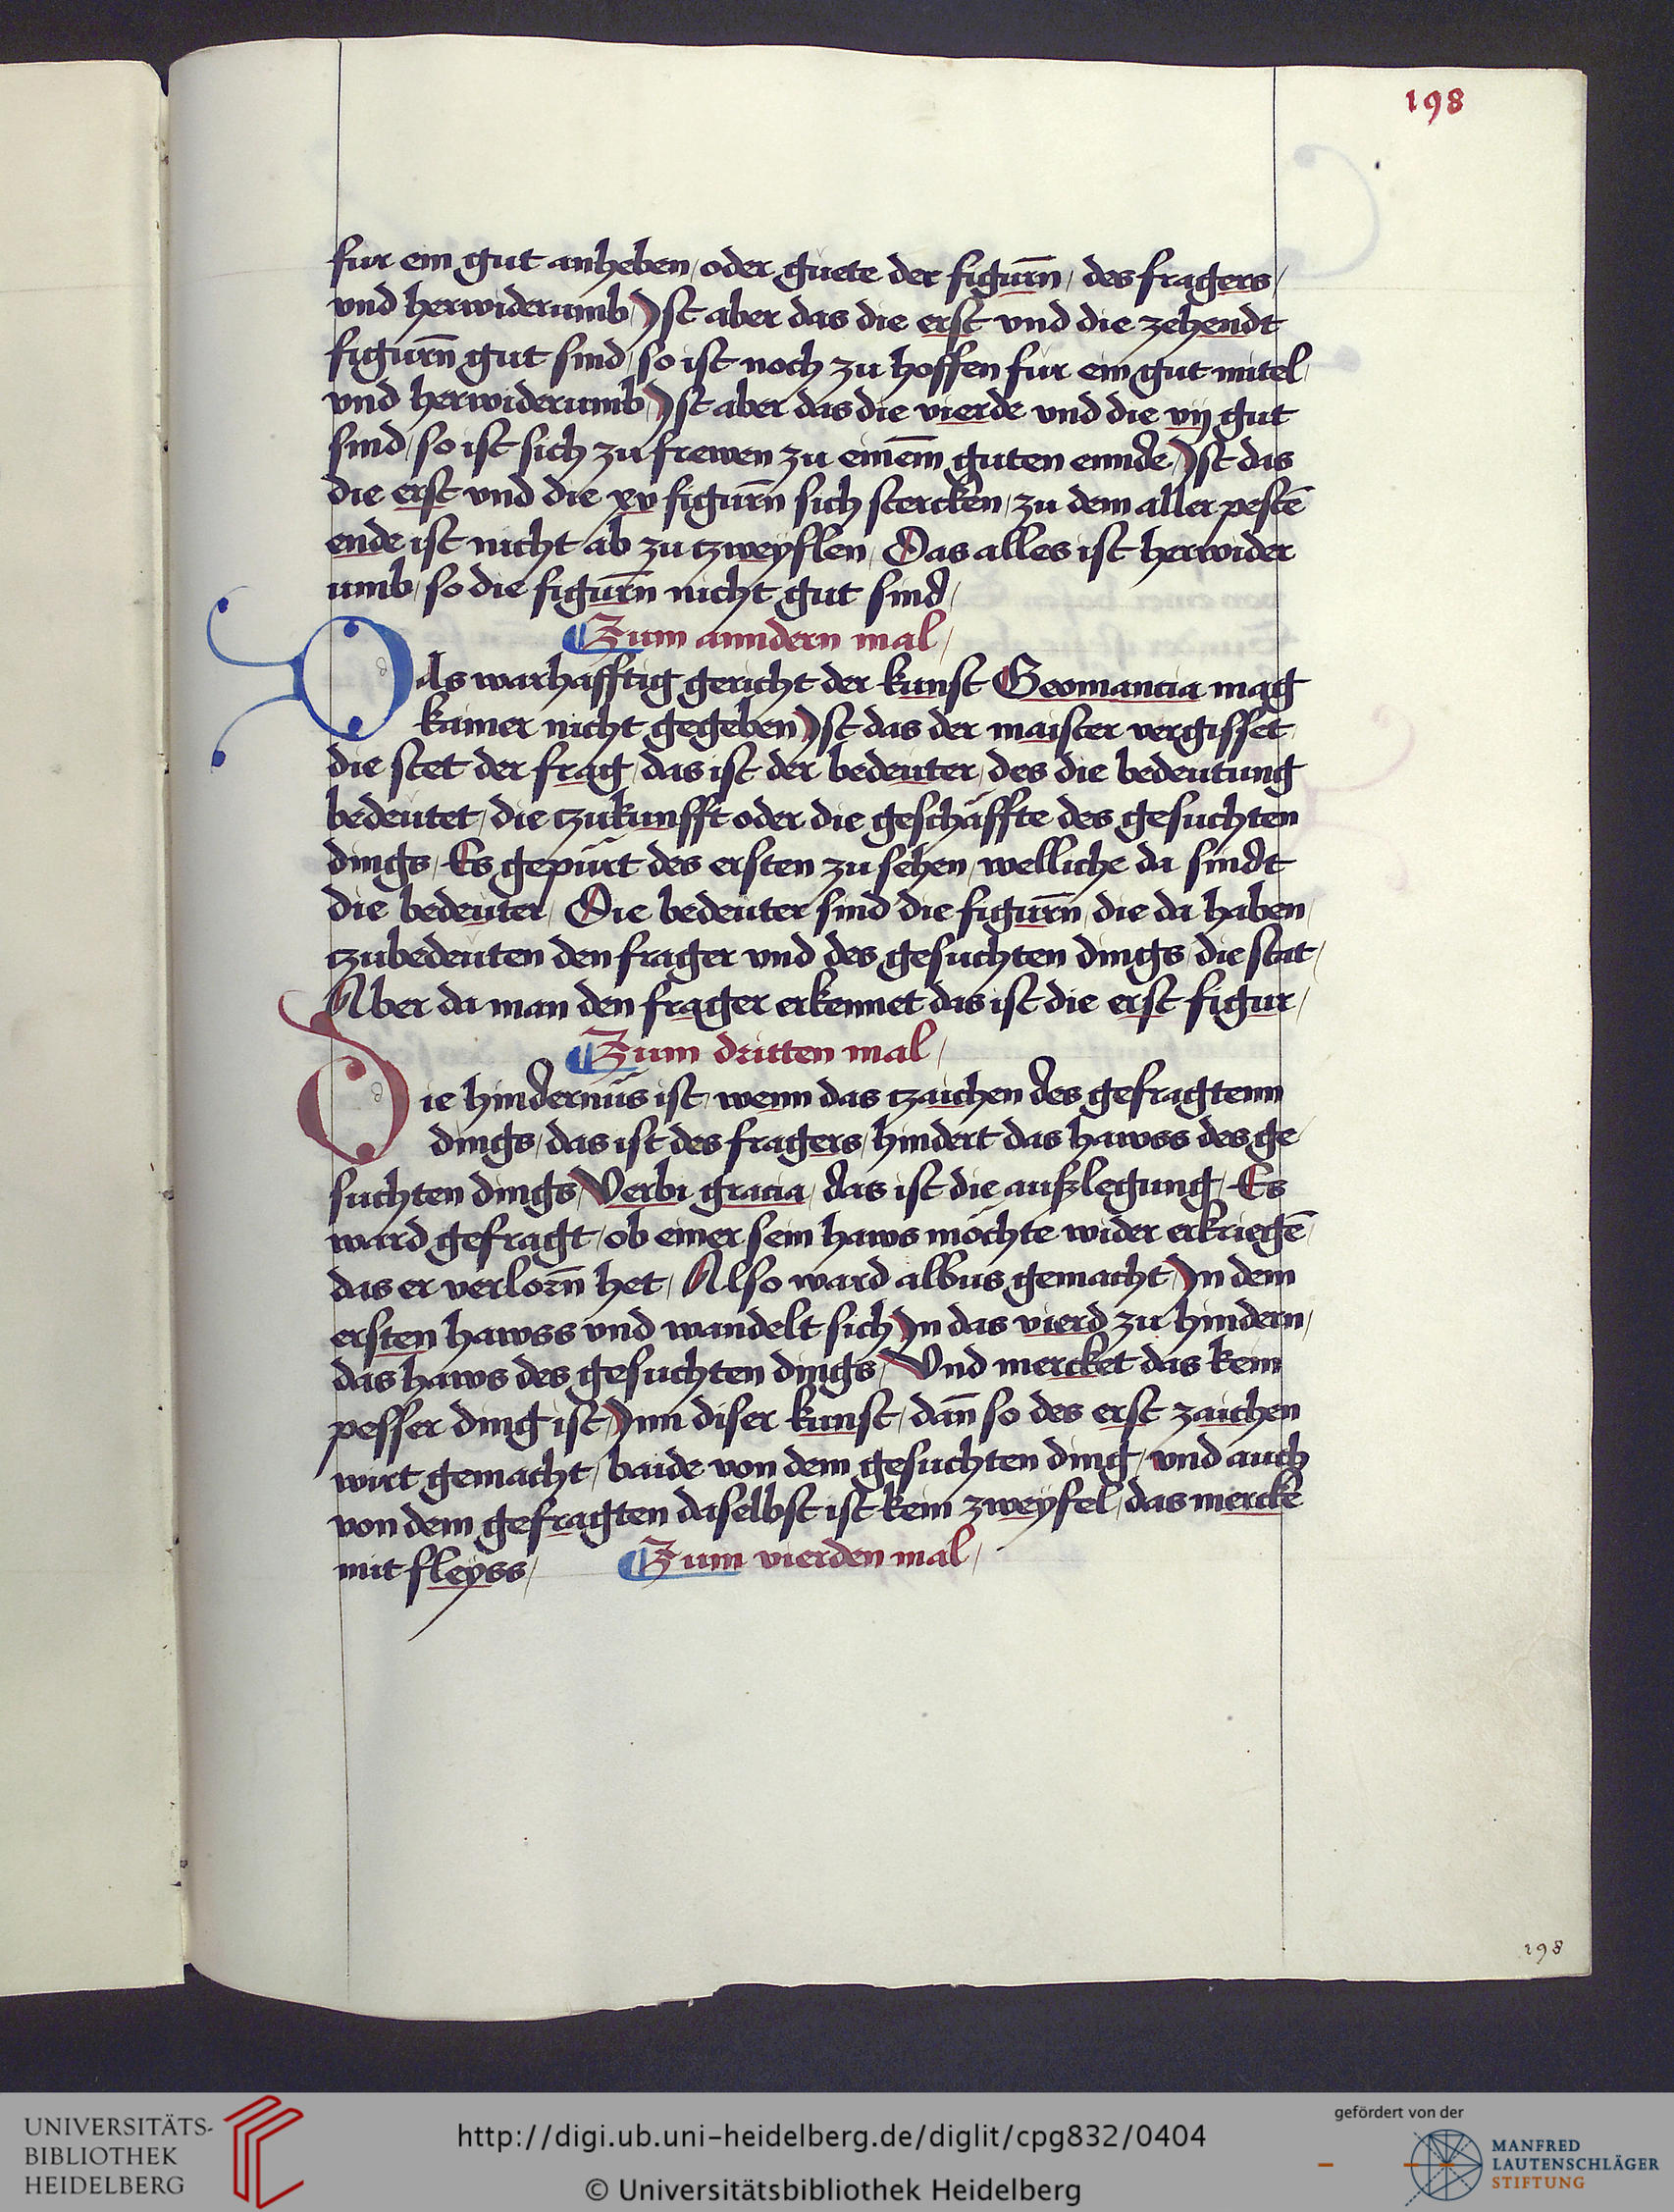 198
fur ein gut anheben / oder guete der figurn̄ / des fragers /
vnd herwiderumb / Ist aber das die erst vnd die zehendt
figurn̄ gut sind / so ist noch zu hoffen fur ein gut mitel /
vnd herwiderumb / Ist aber das die vierde vnd die vij gut
sind / so ist sich zu frewen zu einem̄ guten ennde / Ist das
die erst vnd die xv figurn̄ sich stercken / zu dem aller pestē
ende ist nicht ab zu tzweyflen / Das alles ist herwider
umb / so die figurn̄ nicht gut sind /
¶ Zum anndern mal /
Das warhafftig gericht der kunst Geomancia mag
kainer nicht gegeben / Ist das der maister vergisset
die stet der frag / das ist der bedeuter / des die bedeutung
bedeutet / die tzukunfft oder die geschäffte des gesuchten
dings / Es gepürt des ersten zu sehen / welliche da sindt
die bedeuter / Die bedeuter sind die figurn̄ / die da haben /
tzubedeuten den frager vnd des gesuchten dings / die stat /
Aber da man den frager erkennet das ist die erst figur /
¶ Zum dritten mal /
Die hindernüs ist / wenn das tzaichen des gefragtenn
dings / das ist des fragers / hindert das hawss des ge
suchten dings / Verbi gracia / das ist die auſzlegung / Es
ward gefragt / ob einer sein haws möchte wider erkriegē /
das er verlorn̄ het / Also ward albus gemacht / In dem
ersten hawss vnd wandelt sich In das vierd zu hindern /
das haws des gesuchten dings / Vnd mercket das kein
pesser ding ist / Inn diser kunst / dan̄ so des erst zaichen
wirt gemacht / baide von dem gesuchten ding / vnd auch
von dem gefragten daselbst ist kein zweyfel / das mercke
mit fleyss / ¶ Zum vierden mal /
198
UNIVERSITÄTS-
BIBLIOTHEK
HEIDELBERG
http://digi.ub.uni-heidelberg.de/diglit/cpg832/0404
© Universitätsbibliothek Heidelberg
gefördert von der
MANFRED
LAUTENSCHLÄGER
STIFTUNG